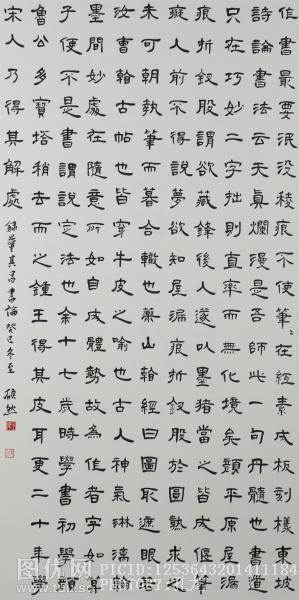 作書最要泯没稜痕不使筆々在紙素成板刻樣東坡
詩論書法云天真爛漫是吾師此一句丹髓也書道
只在巧妙二字拙則直率而無化境矣顏平原屋漏
痕折釵股謂欲藏鋒後人遂以墨猪當之皆成偃筆
癡人前不得說夢欲知屋漏痕折釵股於圓熟求之
未可朝執筆而暮合轍也藥山看經曰圖取遮眼若
汝曹看古帖也皆穿牛皮之喻也古人神氣淋漓翰
墨間妙處在隨意所如自成體勢故為作者字如算
子便不是書謂說定法也余十七歲時學書初學顏
魯公多寶塔稍去而之鍾王得其皮耳更二十年學
宋人乃得其解處
錄董其昌書論癸巳冬至
图行天下
PICID:1253643201411184